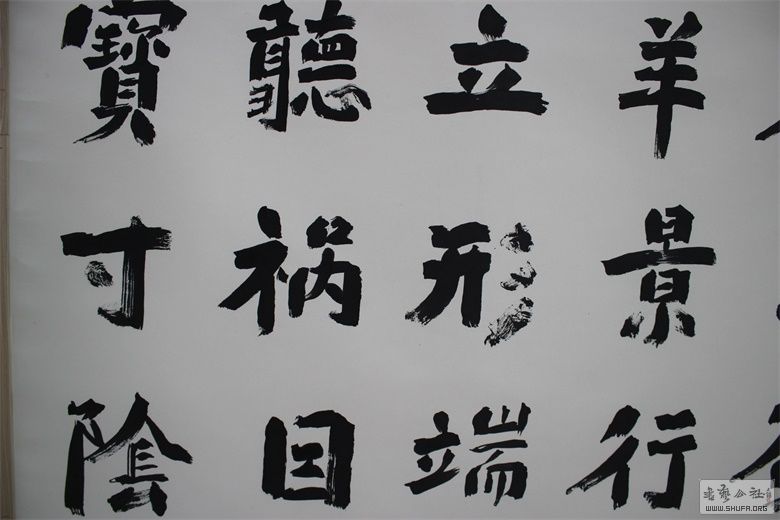 羊景行
立形端
聽祸因
寶寸陰
书艺公社
WWW.SHUFA.ORG